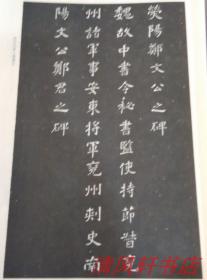 熒陽鄭文公之碑
魏故中書令秘書監使持節督兗
州諸軍事安東將軍兗州刺史南
陽文公鄭君之碑
清风轩书店